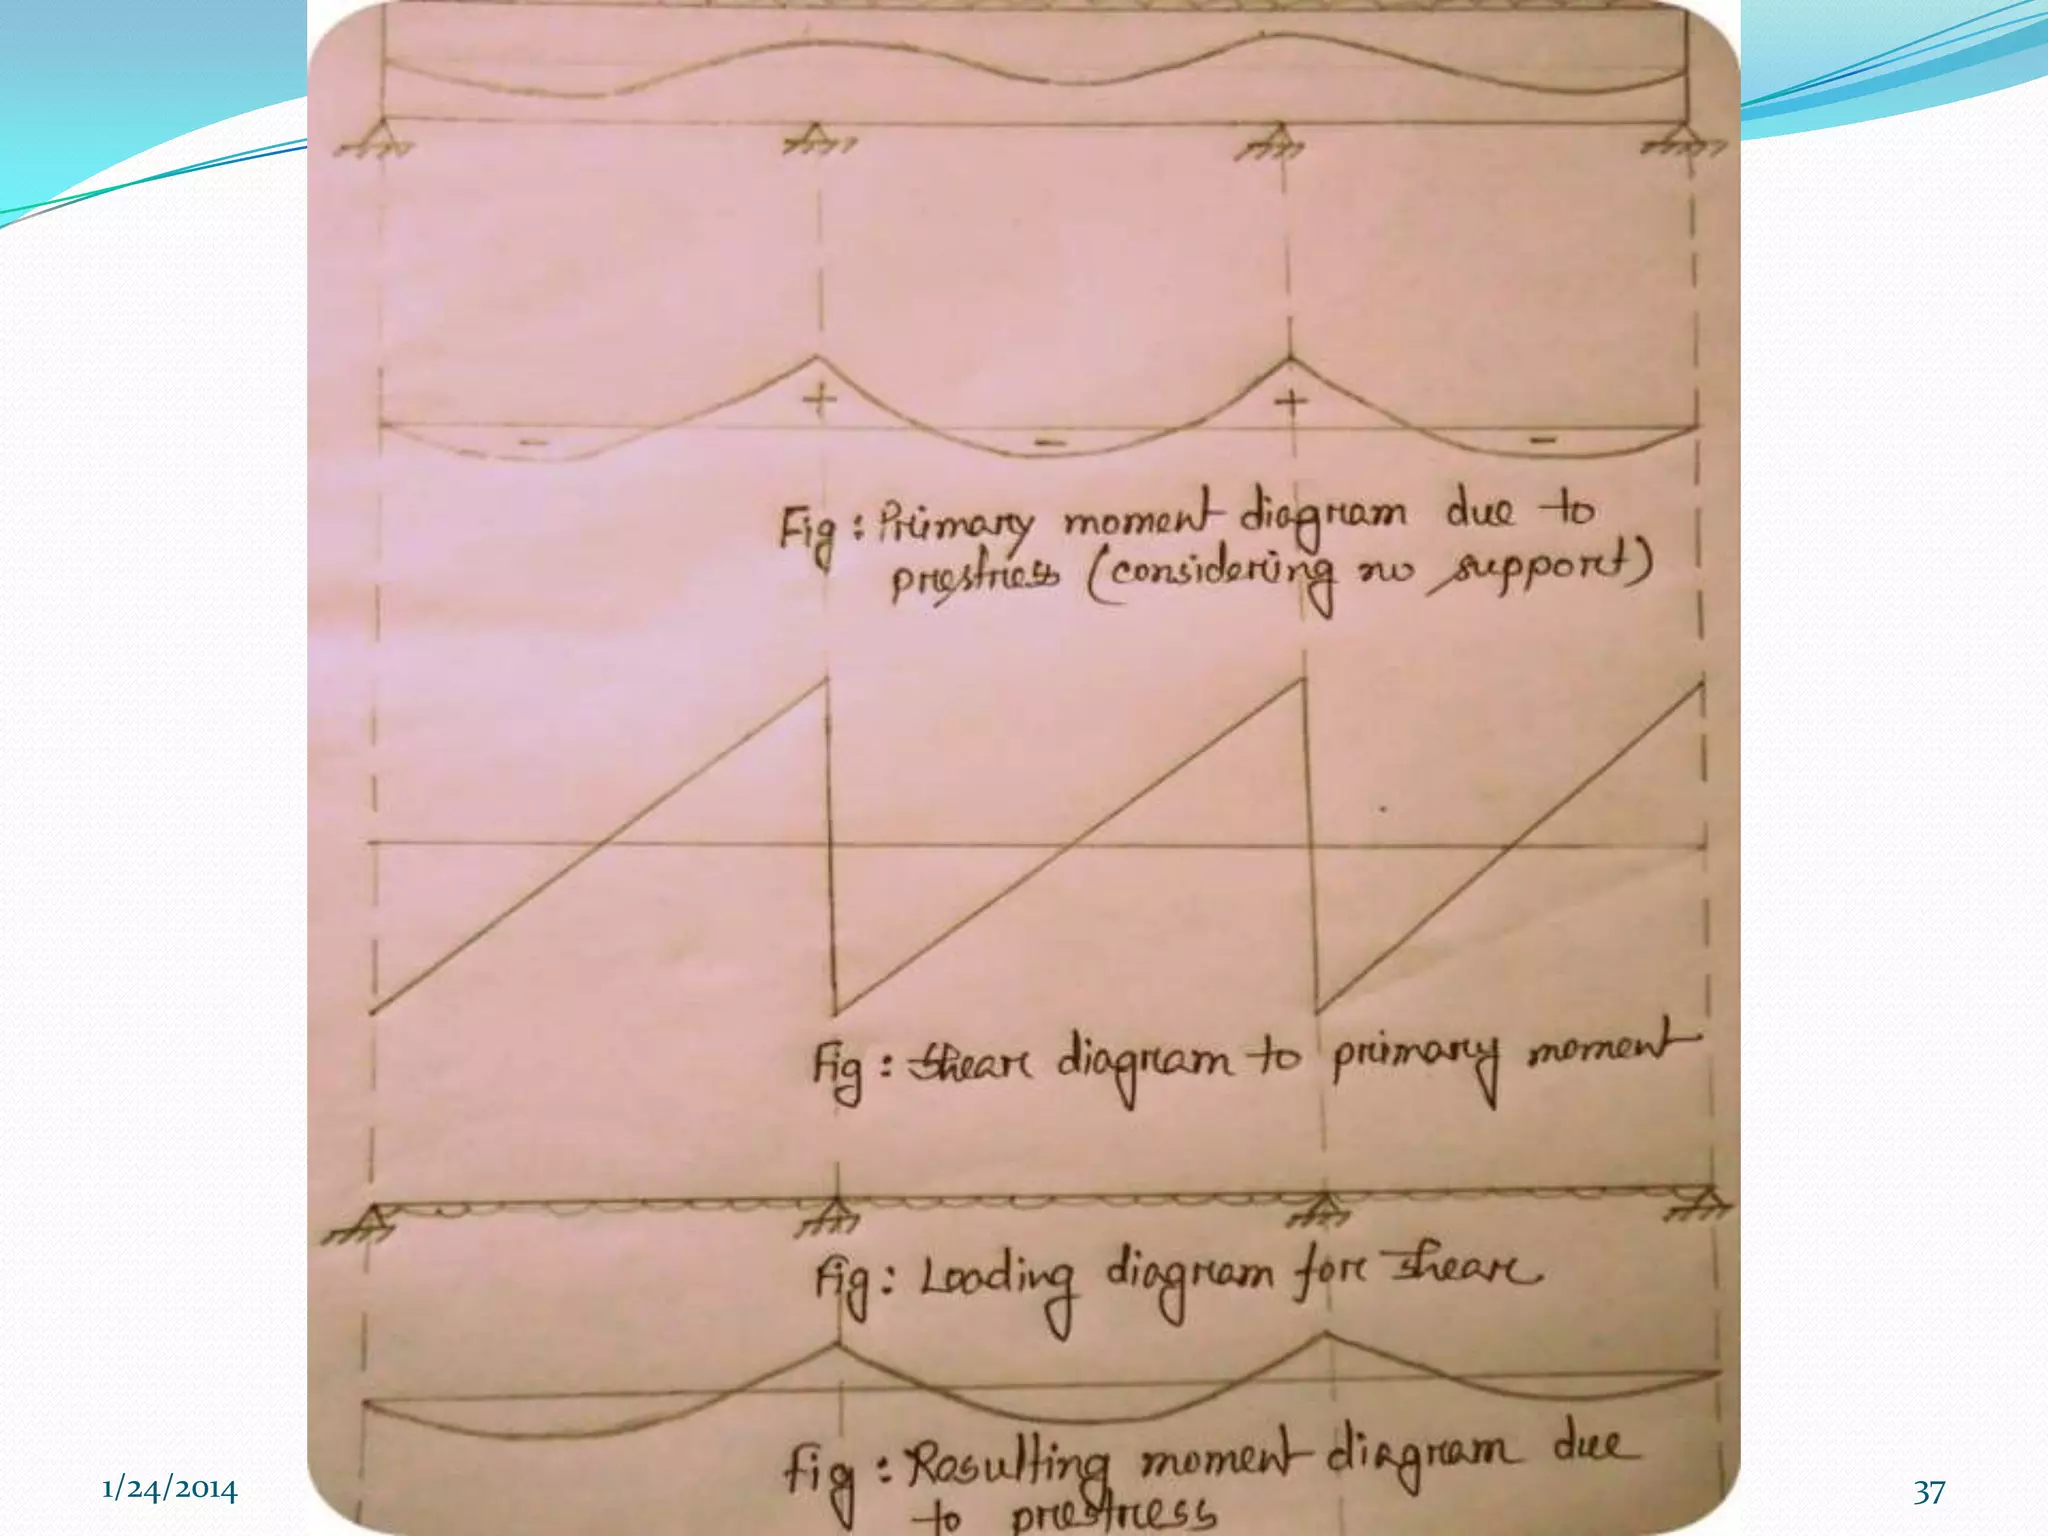 +
+
-
-
-
Fig: Primary moment diagram due to
prestress (considering no support)
Fig: Shear diagram to primary moment
Fig: Loading diagram for shear
fig: Resulting moment diagram due
to prestress
1/24/2014
37